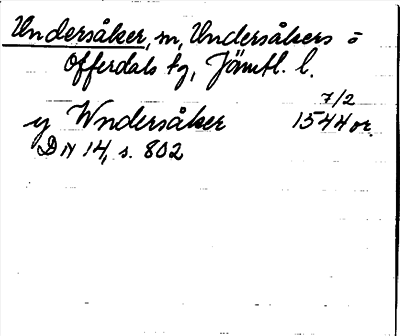 Undersåker, m, Undersåkers o
Offerdals tg, Jämtl. l.
7/2
y Wndersåker 1544 or.
DN 14, s. 802